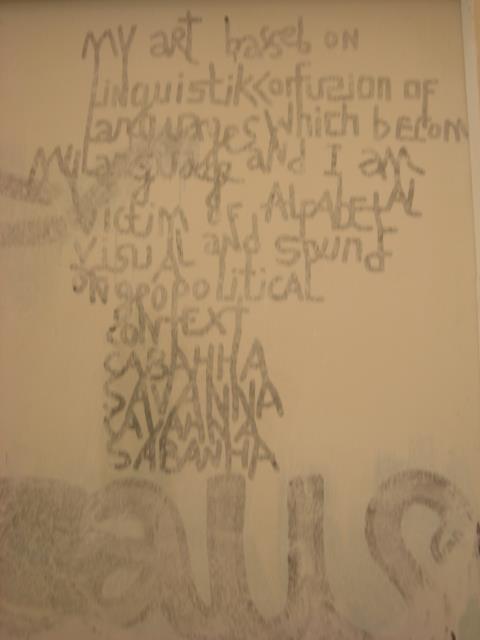 MY art bassed ON
Linguistikk confuzion of
Languages Which bECOM
My Language and I am
Victim of ALPABETAL
Visual and sound
ON geopolitical
CONTEXT
SABAHHA
SAVANNA
SAVAHNA
SABANHA
aus